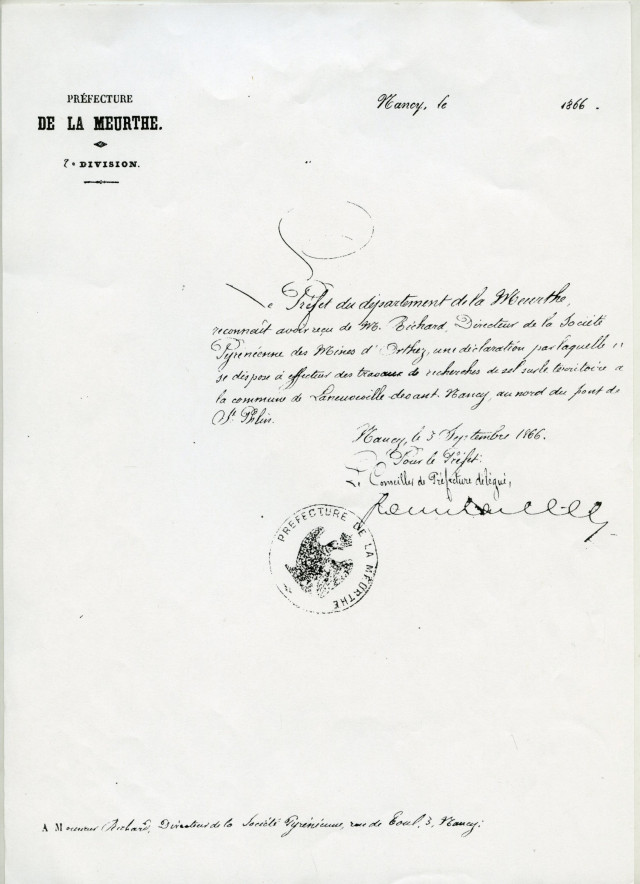 PRÉFECTURE
DE LA MEURTHE.
2e DIVISION.
Nancy, le 1866.
Le Préfet du département de la Meurthe,
reconnaît avoir reçu de M. Richard, Directeur de la Société
Pyrénéenne des Mines d'Orthez, une déclaration par laquelle il
se dispose à effectuer des travaux de recherches de sel sur le territoire
la commune de Laneuveville devant Nancy, au nord du pont de
St Phlin.
Nancy, le 3 Septembre 1866.
Pour le Préfet:
Le Conseiller de Préfecture délégué,
PREFECTURE DE LA MEURTHE
A Monsieur Richard, Directeur de la Société Pyrénéenne, rue de Toul, 3, Nancy.